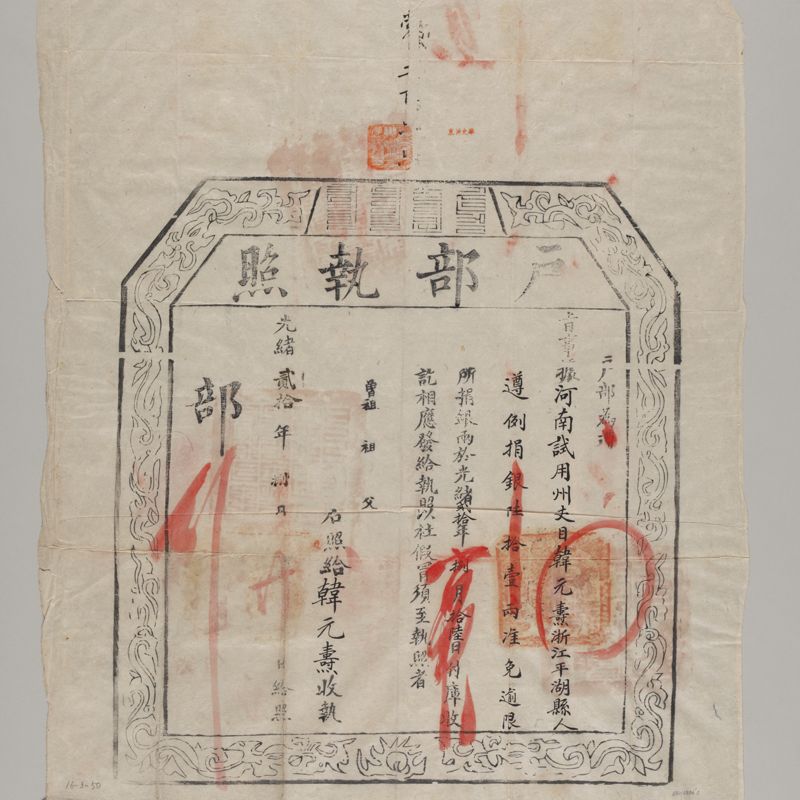 戶部執照
戶部為
據河南試用州吏目韓元燾浙江平湖縣人
遵例捐銀陸拾壹兩准免逾限
所捐銀兩於光緒貳拾年捌月拾陸日付庫收
訖相應發給執照以杜假冒須至執照者
曾祖 祖 父
右照給韓元燾收執
光緒貳拾年捌月 日給照
部
16-3-50